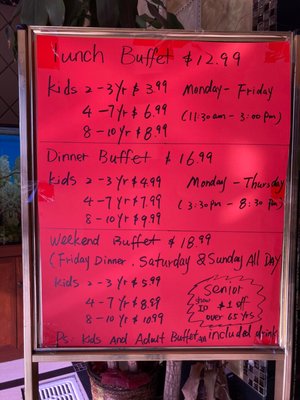 Lunch Buffet $12.99
Kids 2-3yr $3.99 Monday - Friday
4-7yr $6.99 (11:30am - 3:00pm)
8-10yr $8.99
Dinner Buffet $16.99
Kids 2-3yr $4.99 Monday - Thursday
4-7yr $7.99 (3:30pm - 8:30pm)
8-10yr $9.99
Weekend Buffet $18.99
(Friday Dinner. Saturday & Sunday All Day
Kids 2-3yr $5.99
4-7yr $8.99
8-10yr $10.99
Senior
show ID $1 off
over 65 yrs
Ps. Kids And Adult Buffet included drink